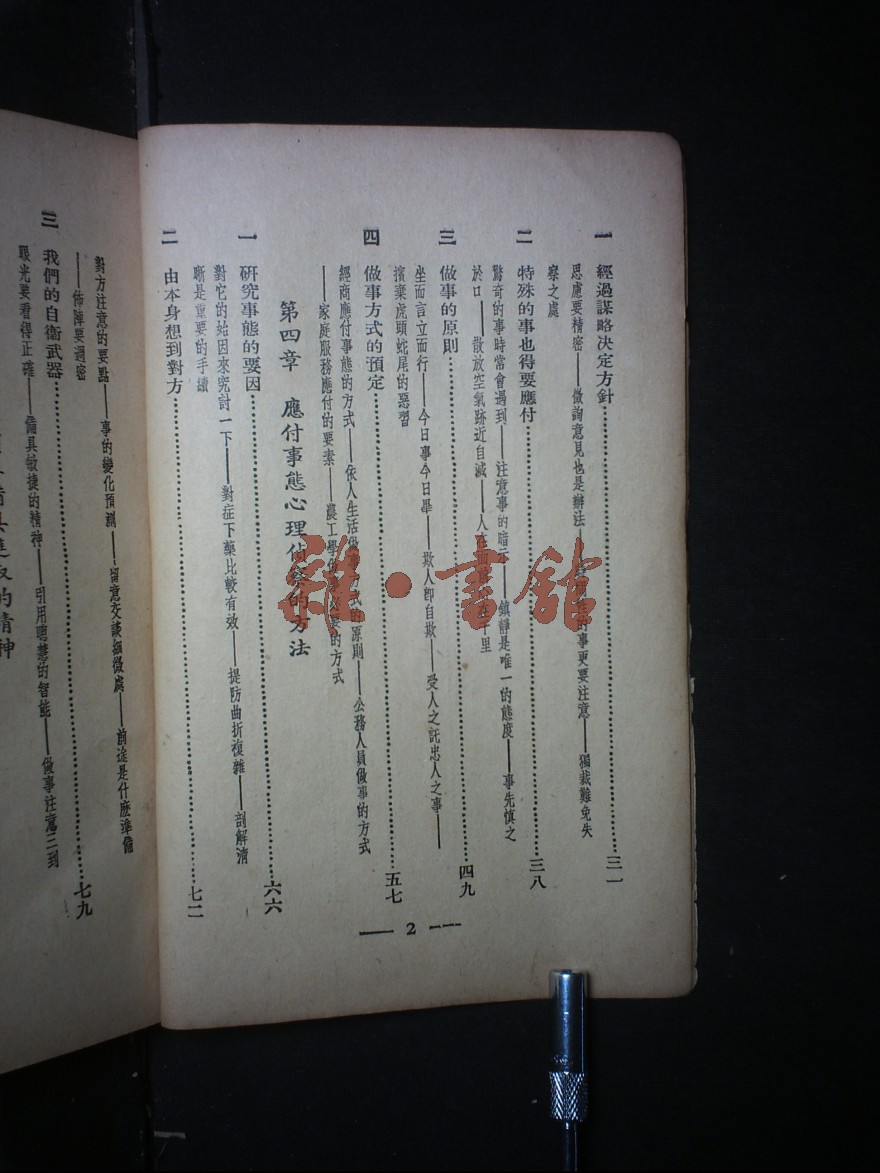 一 經過謀略決定方針 三一
思慮要精密——徵詢意見也是辦法——的事更要注意——獨裁難免失
察之處
二 特殊的事也得要應付 三八
驚奇的事時常會遇到——注意事的暗示——鎮靜是唯一的態度——事先慎之
於口——散放空氣跡近自滅——人在面 千里
三 做事的原則 四九
坐而言立而行——今日事今日畢——欺人卽自欺——受人之託忠人之事——
擯棄虎頭蛇尾的惡習
四 做事方式的預定 五七
經商應付事態的方式——依人生活做事方式的原則——公務人員做事的方式
——家庭服務應付的要素——農工學 要的方式
第四章 應付事態心理偵察的方法
一 研究事態的要因 六六
對它的始因來究討一下——對症下藥比較有效——提防曲折複雜——剖解清
晰是重要的手續
二 由本身想到對方 七二
— 2 —
對方注意的要點——事的變化預測——留意交談細微處——前途是什麽準備
——佈陣要週密
三 我們的自衛武器 七九
眼光要看得正確——備具敏捷的精神——引用聰慧的智能——做事注意三到
的精神
雜·書館